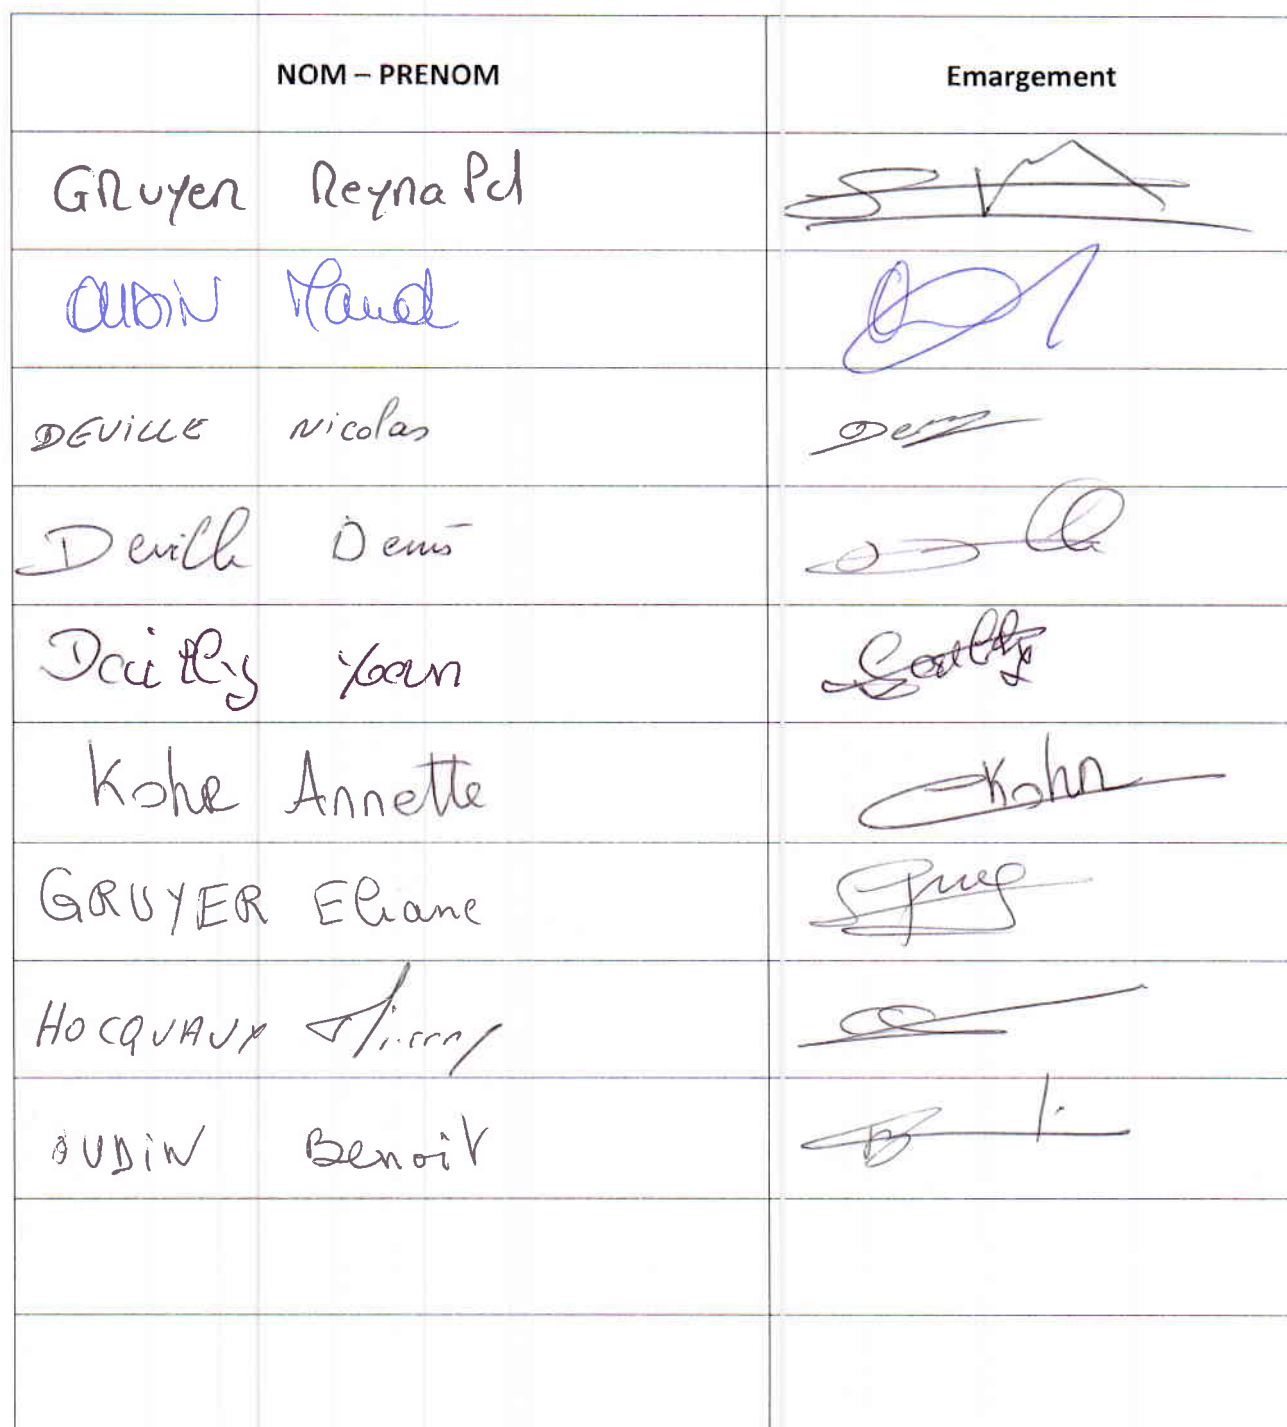 NOM – PRENOM Emargement
GRUYER Reynald
OUDIN Maud
DEVILLE Nicolas
Deville Denis
Dailly Yoan
Kohr Annette Kohr
GRUYER Eliane
HOCQUAUX Thierry
OUDIN Benoit